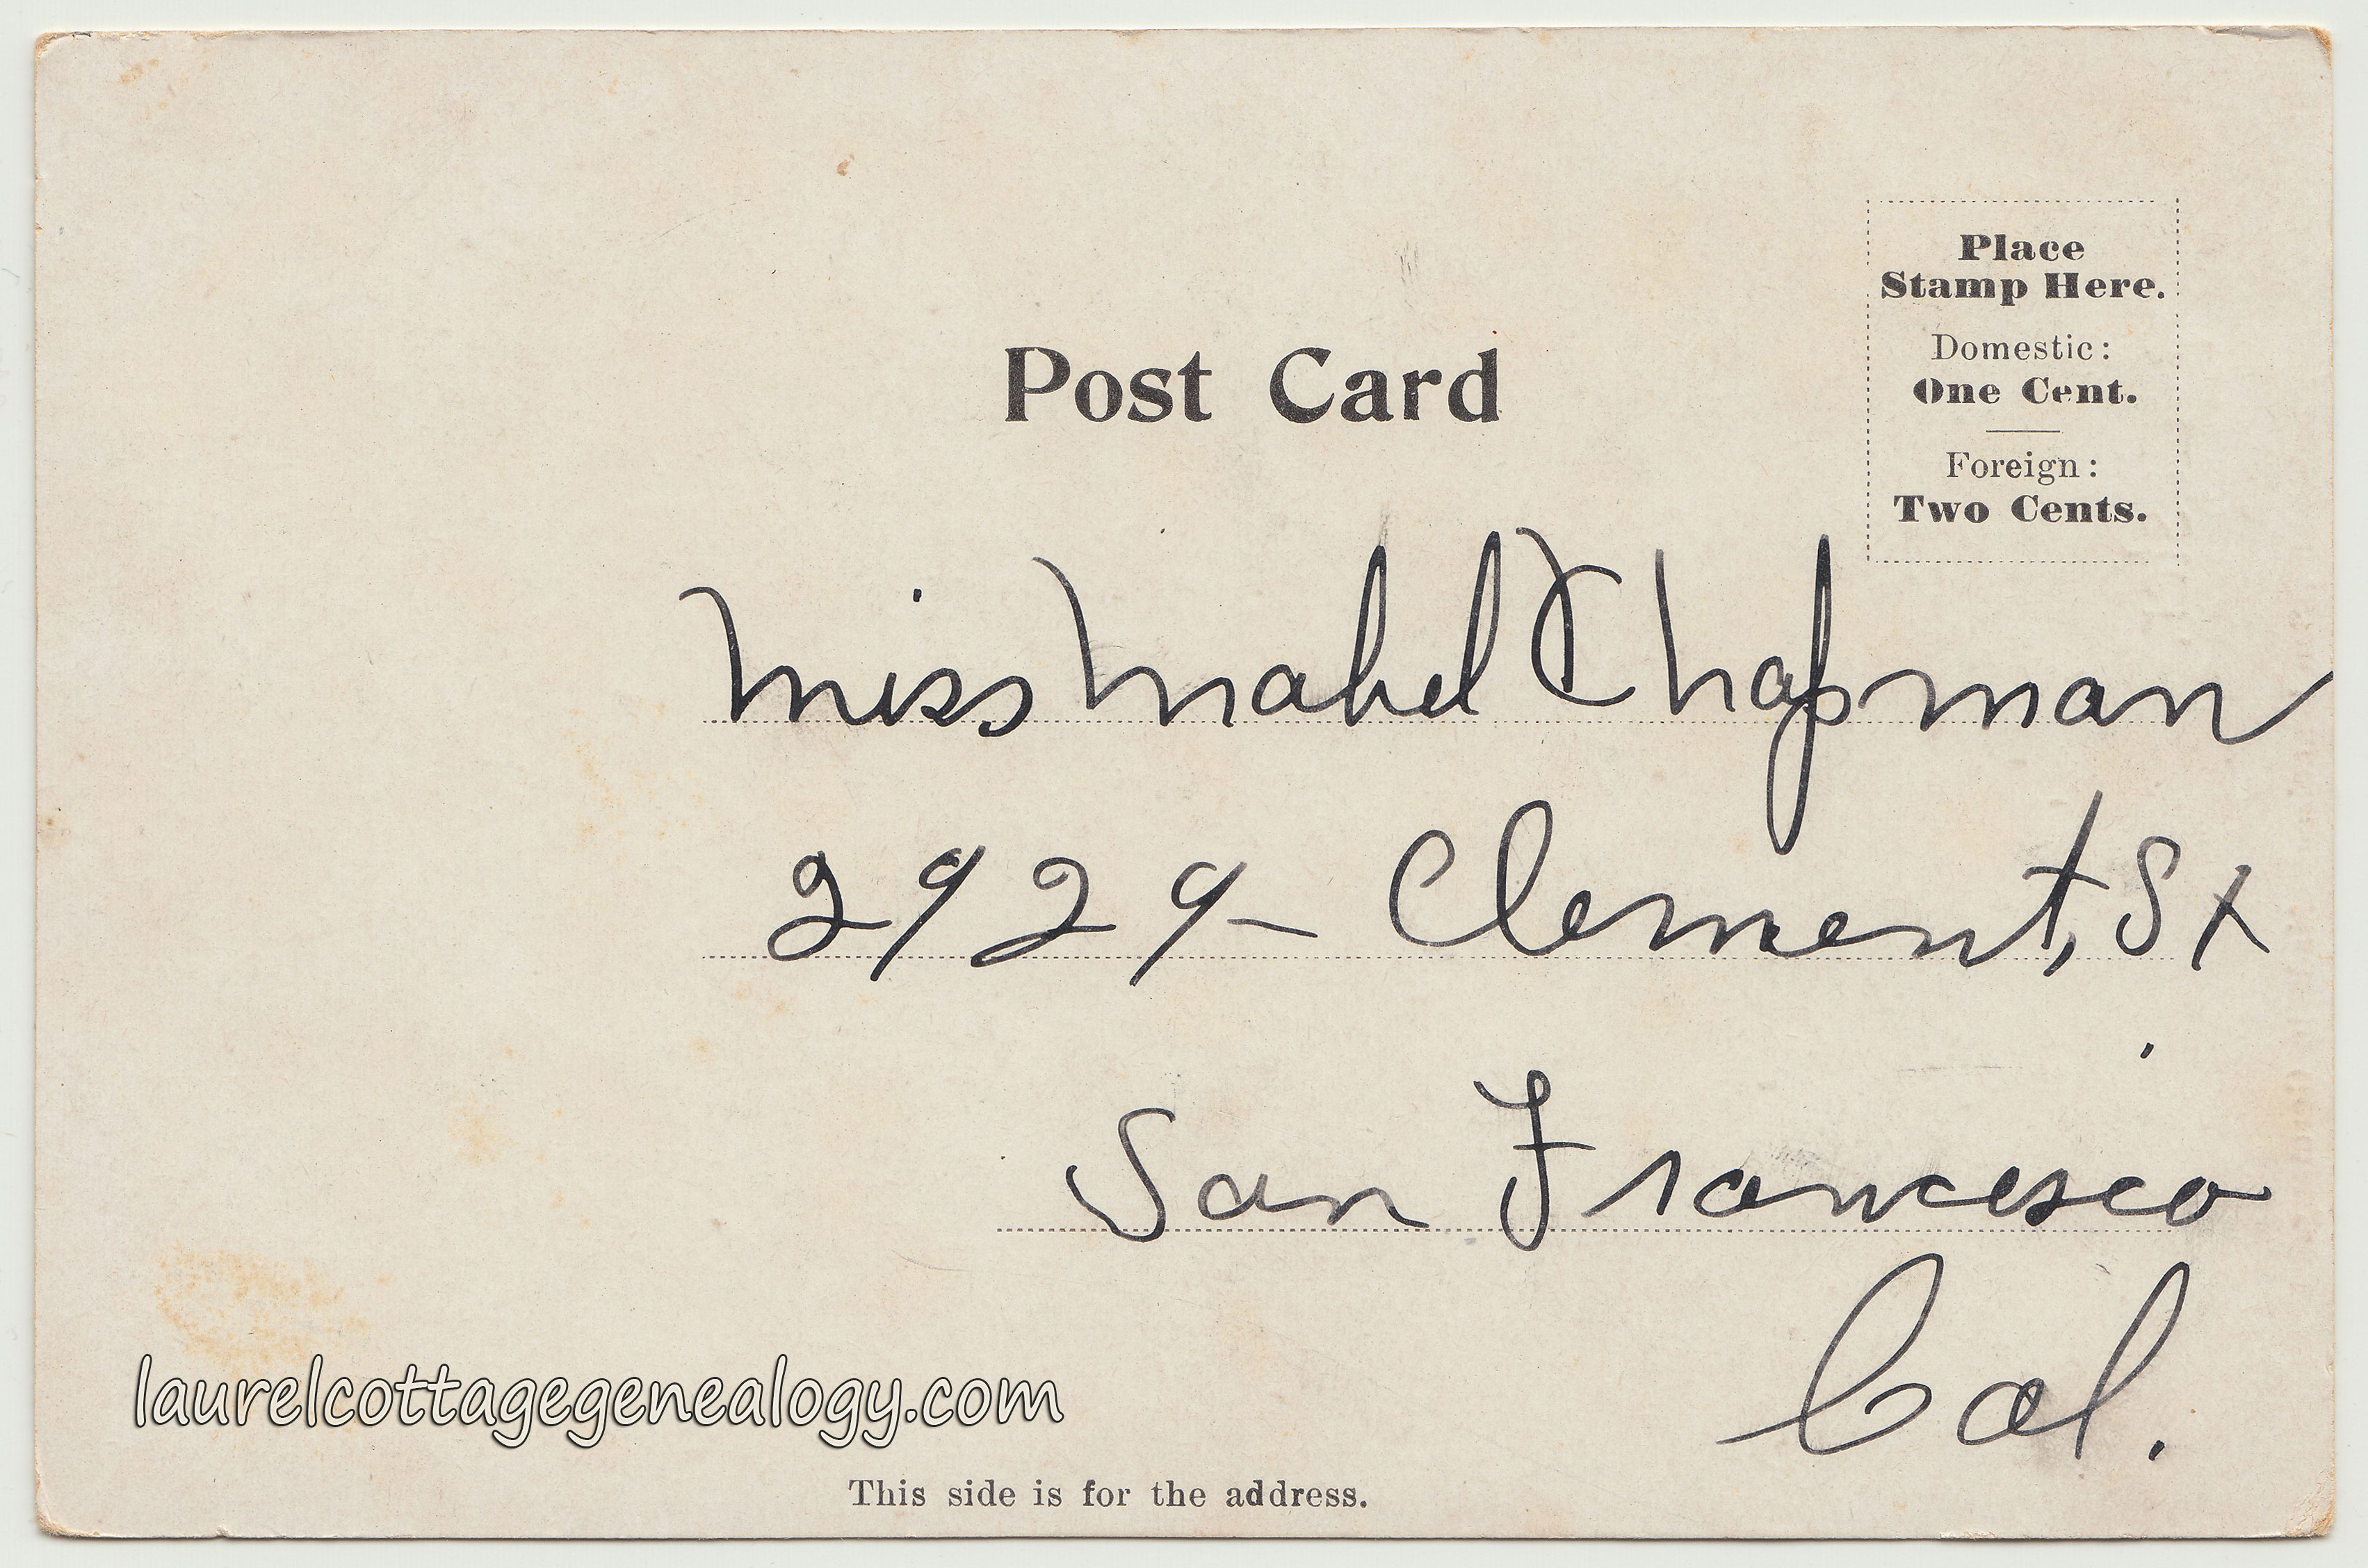 Place
Stamp Here.
Domestic:
One Cent.
Foreign:
Two Cents.
Post Card
Miss Mabel Chapman
2929 - Clement, St
San Francisco
Cal.
laurelcottagegenealogy.com
This side is for the address.